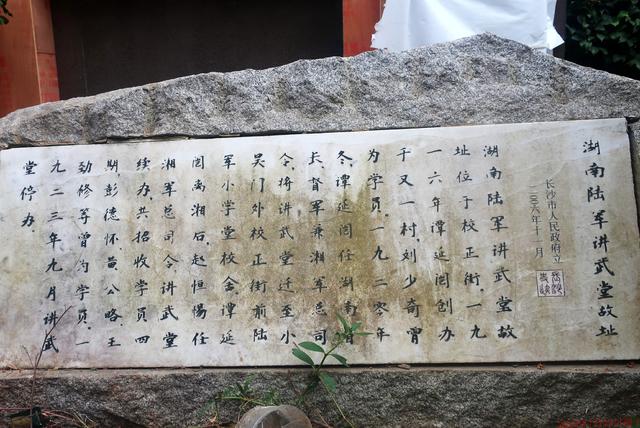 湖南陆军讲武堂故址
长沙市人民政府立
二〇〇六年十一月
湖南陆军讲武堂故
址位于校正街，一九
一六年谭延闿创办
于又一村，刘少奇曾
为学员，一九二零年
冬，谭延闿任湖南省
长、督军兼湘军总司
令，将讲武堂迁至小
吴门外校正街前陆
军小学堂校舍，谭延
闿离湘后，赵恒惕任
湘军总司令，讲武堂
续办，共招收学员四
期，彭德怀、黄公略、王
劲修等曾为学员，一
九二三年九月讲武
堂停办。